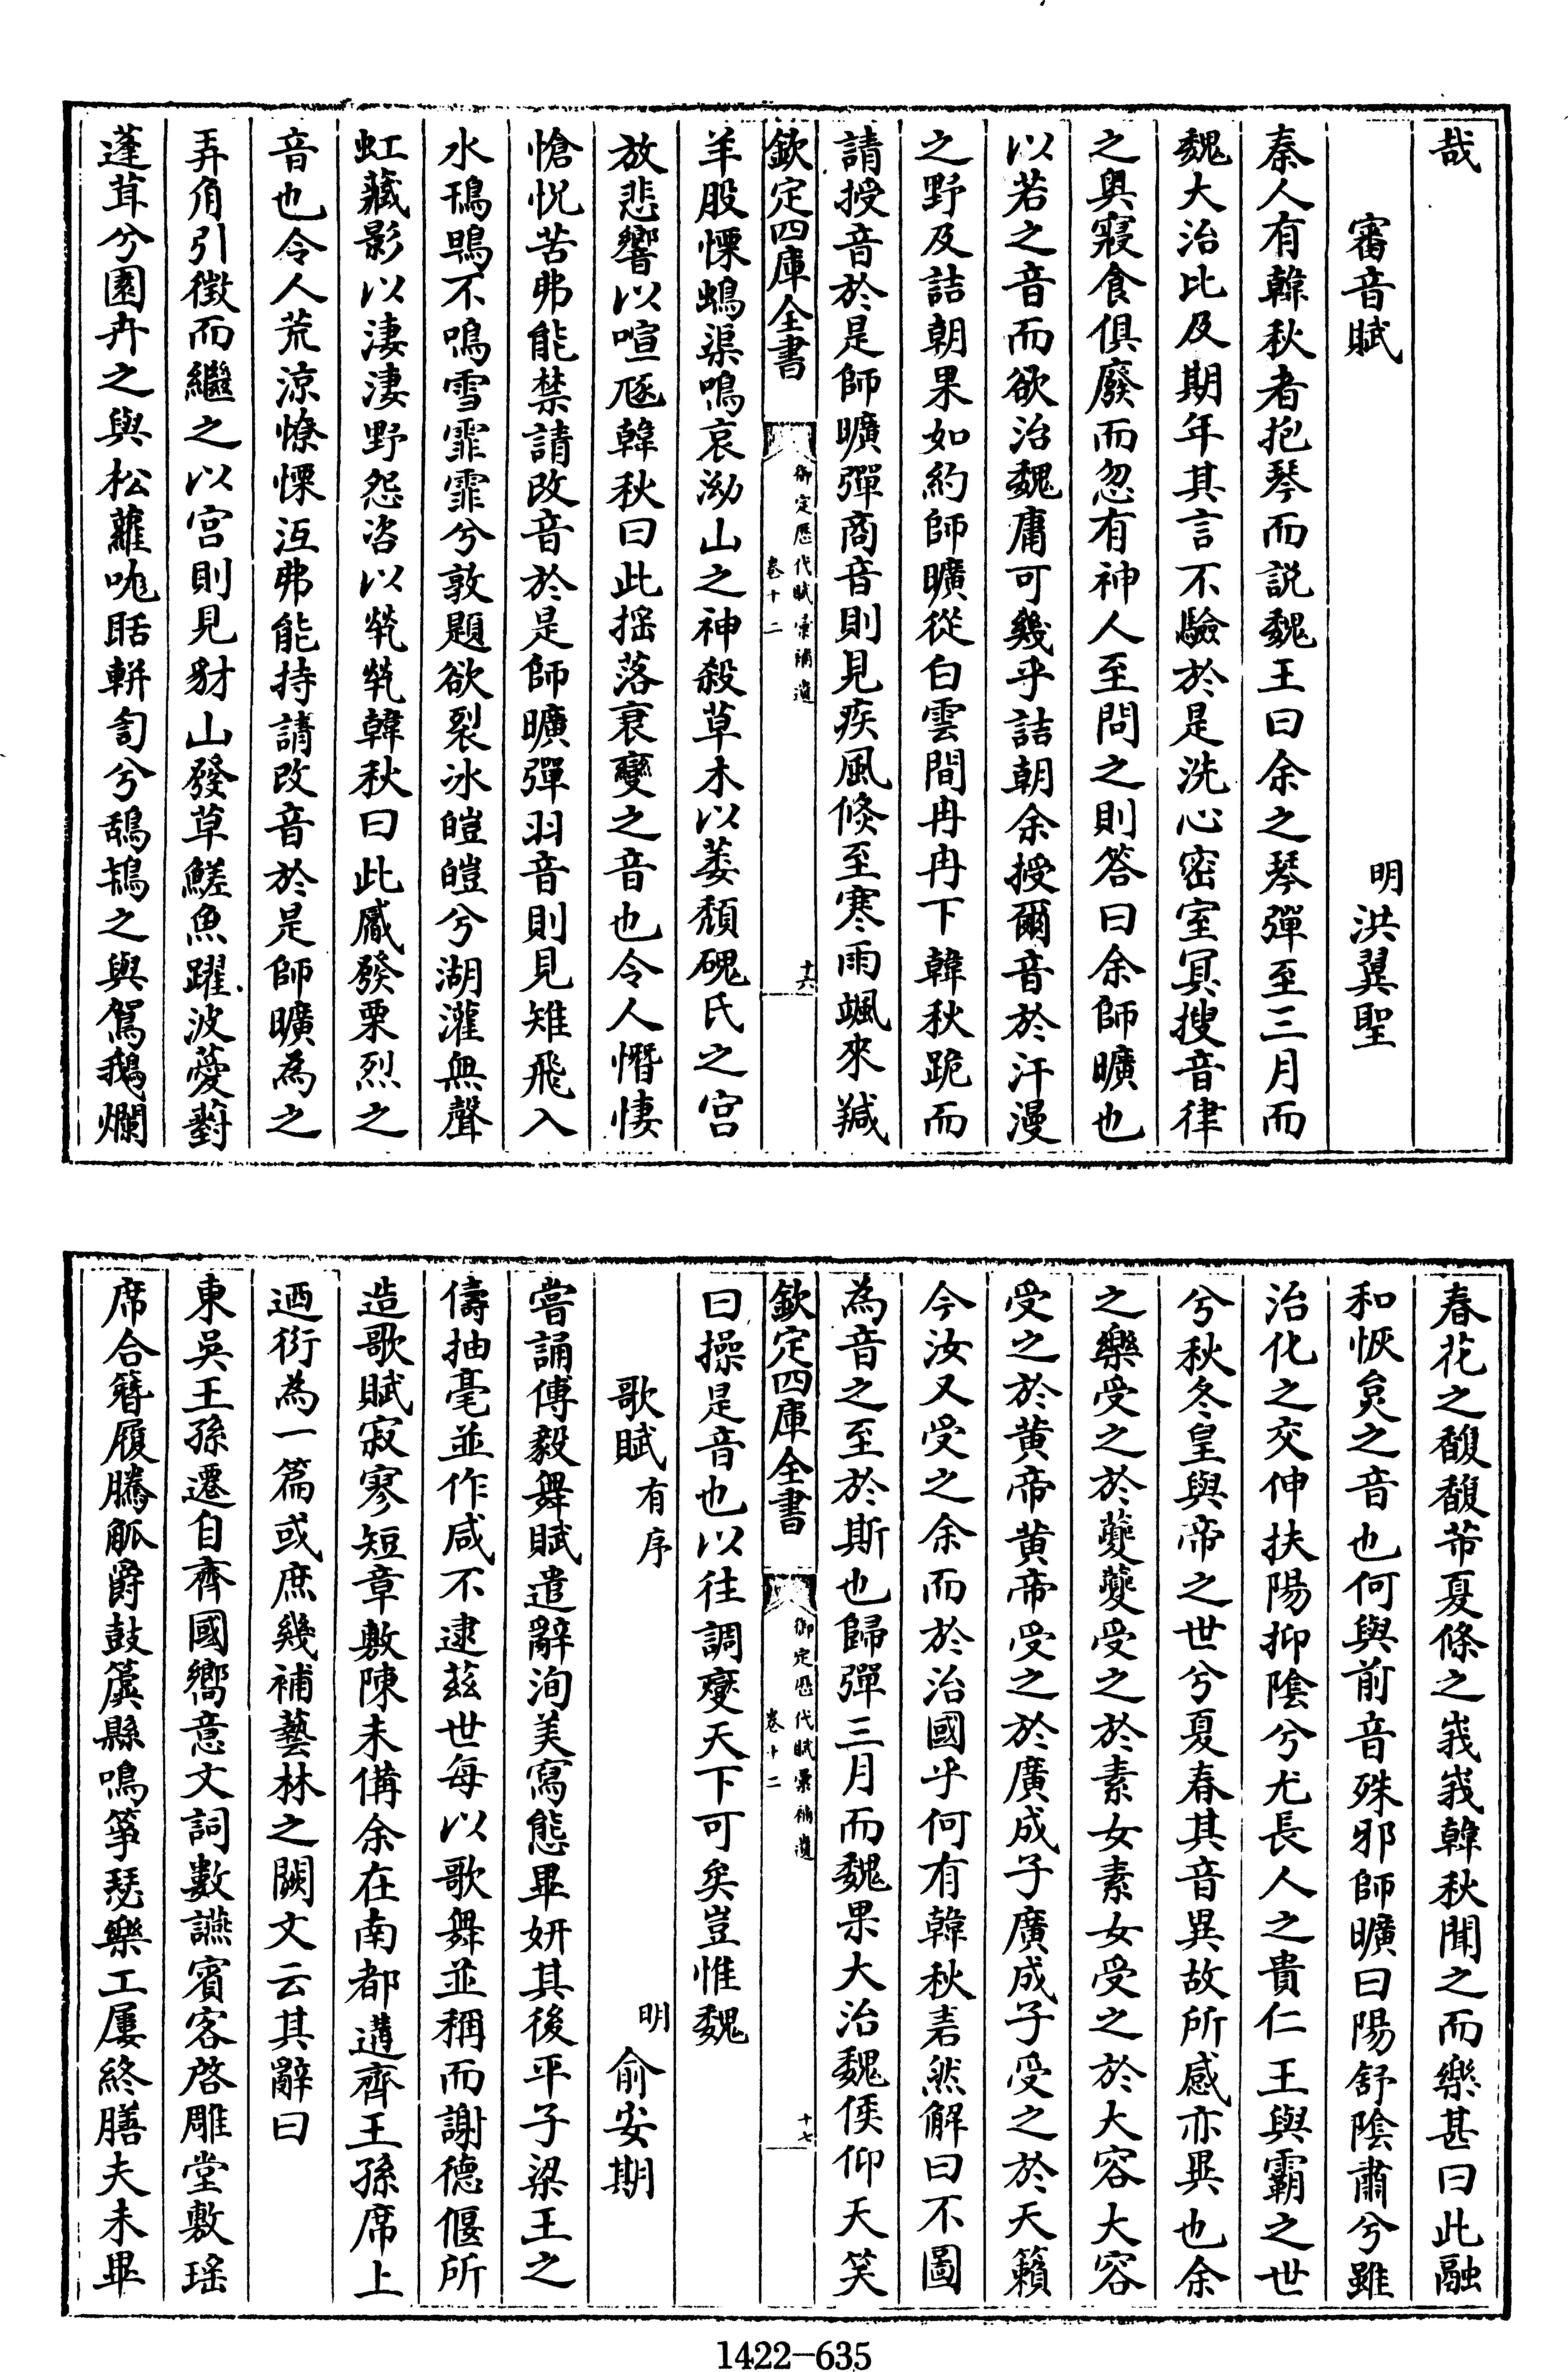 哉
審音賦
明洪翼聖
秦人有韓秋者抱琴而説魏王曰余之琴彈至三月而
魏大治比及期年其言不驗於是洗心密室冥搜音律
之奥寢食俱廢而忽有神人至問之則答曰余師曠也
以若之音而欲治魏庸可幾乎詰朝余授爾音於汗漫
之野及詰朝果如約師曠從白雲間冉冉下韓秋跪而
請授音於是師曠彈商音則見疾風倐至寒雨颯來羬
欽定四庫全書
御定歴代賦彚補遺
卷十二
十六
羊股慄螐渠鳴哀泑山之神殺草木以萎頽磈氏之宫
放悲響以喧豗韓秋曰此揺落衰變之音也令人慴悽
愴怳苦弗能禁請改音於是師曠彈羽音則見雉飛入
水鶡鴠不鳴雪霏霏兮敦題欲裂冰皚皚兮湖灌無聲
虹藏影以淒淒野怨咨以煢煢韓秋曰此觱發栗烈之
音也令人荒涼憭慄沍弗能持請改音於是師曠為之
弄角引徵而繼之以宫則見豺山發草鱃魚躍波蔓葑
蓬茸兮園卉之與松蘿咣聒軿訇兮鴰鴇之與鴐鵝爛
春花之馥馥芾夏條之峩峩韓秋聞之而樂甚曰此融
和恢炱之音也何與前音殊邪師曠曰陽舒陰肅兮雖
治化之交伸扶陽抑陰兮尤長人之貴仁王與霸之世
兮秋冬皇與帝之世兮夏春其音異故所感亦異也余
之樂受之於夔夔受之於素女素女受之於大容大容
受之於黄帝黄帝受之於廣成子廣成子受之於天籟
今汝又受之余而於治國乎何有韓秋砉然解曰不圖
為音之至於斯也歸彈三月而魏果大治魏侯仰天笑
欽定四庫全書
御定歴代賦彚補遺
卷十二
十七
曰操是音也以往調燮天下可矣豈惟魏
歌賦有序
明俞安期
嘗誦傅毅舞賦遣辭洵美寫態畢妍其後平子梁王之
儔抽毫並作咸不逮茲世每以歌舞並稱而謝德偃所
造歌賦寂寥短章敷陳未備余在南都遘齊王孫席上
迺衍為一篇或庶幾補藝林之闕文云其辭曰
東吳王孫遷自齊國嚮意文詞數讌賓客啓雕堂敷瑤
席合簪履騰觚爵鼓簴縣鳴箏琵樂工屢終膳夫未畢
1422-635